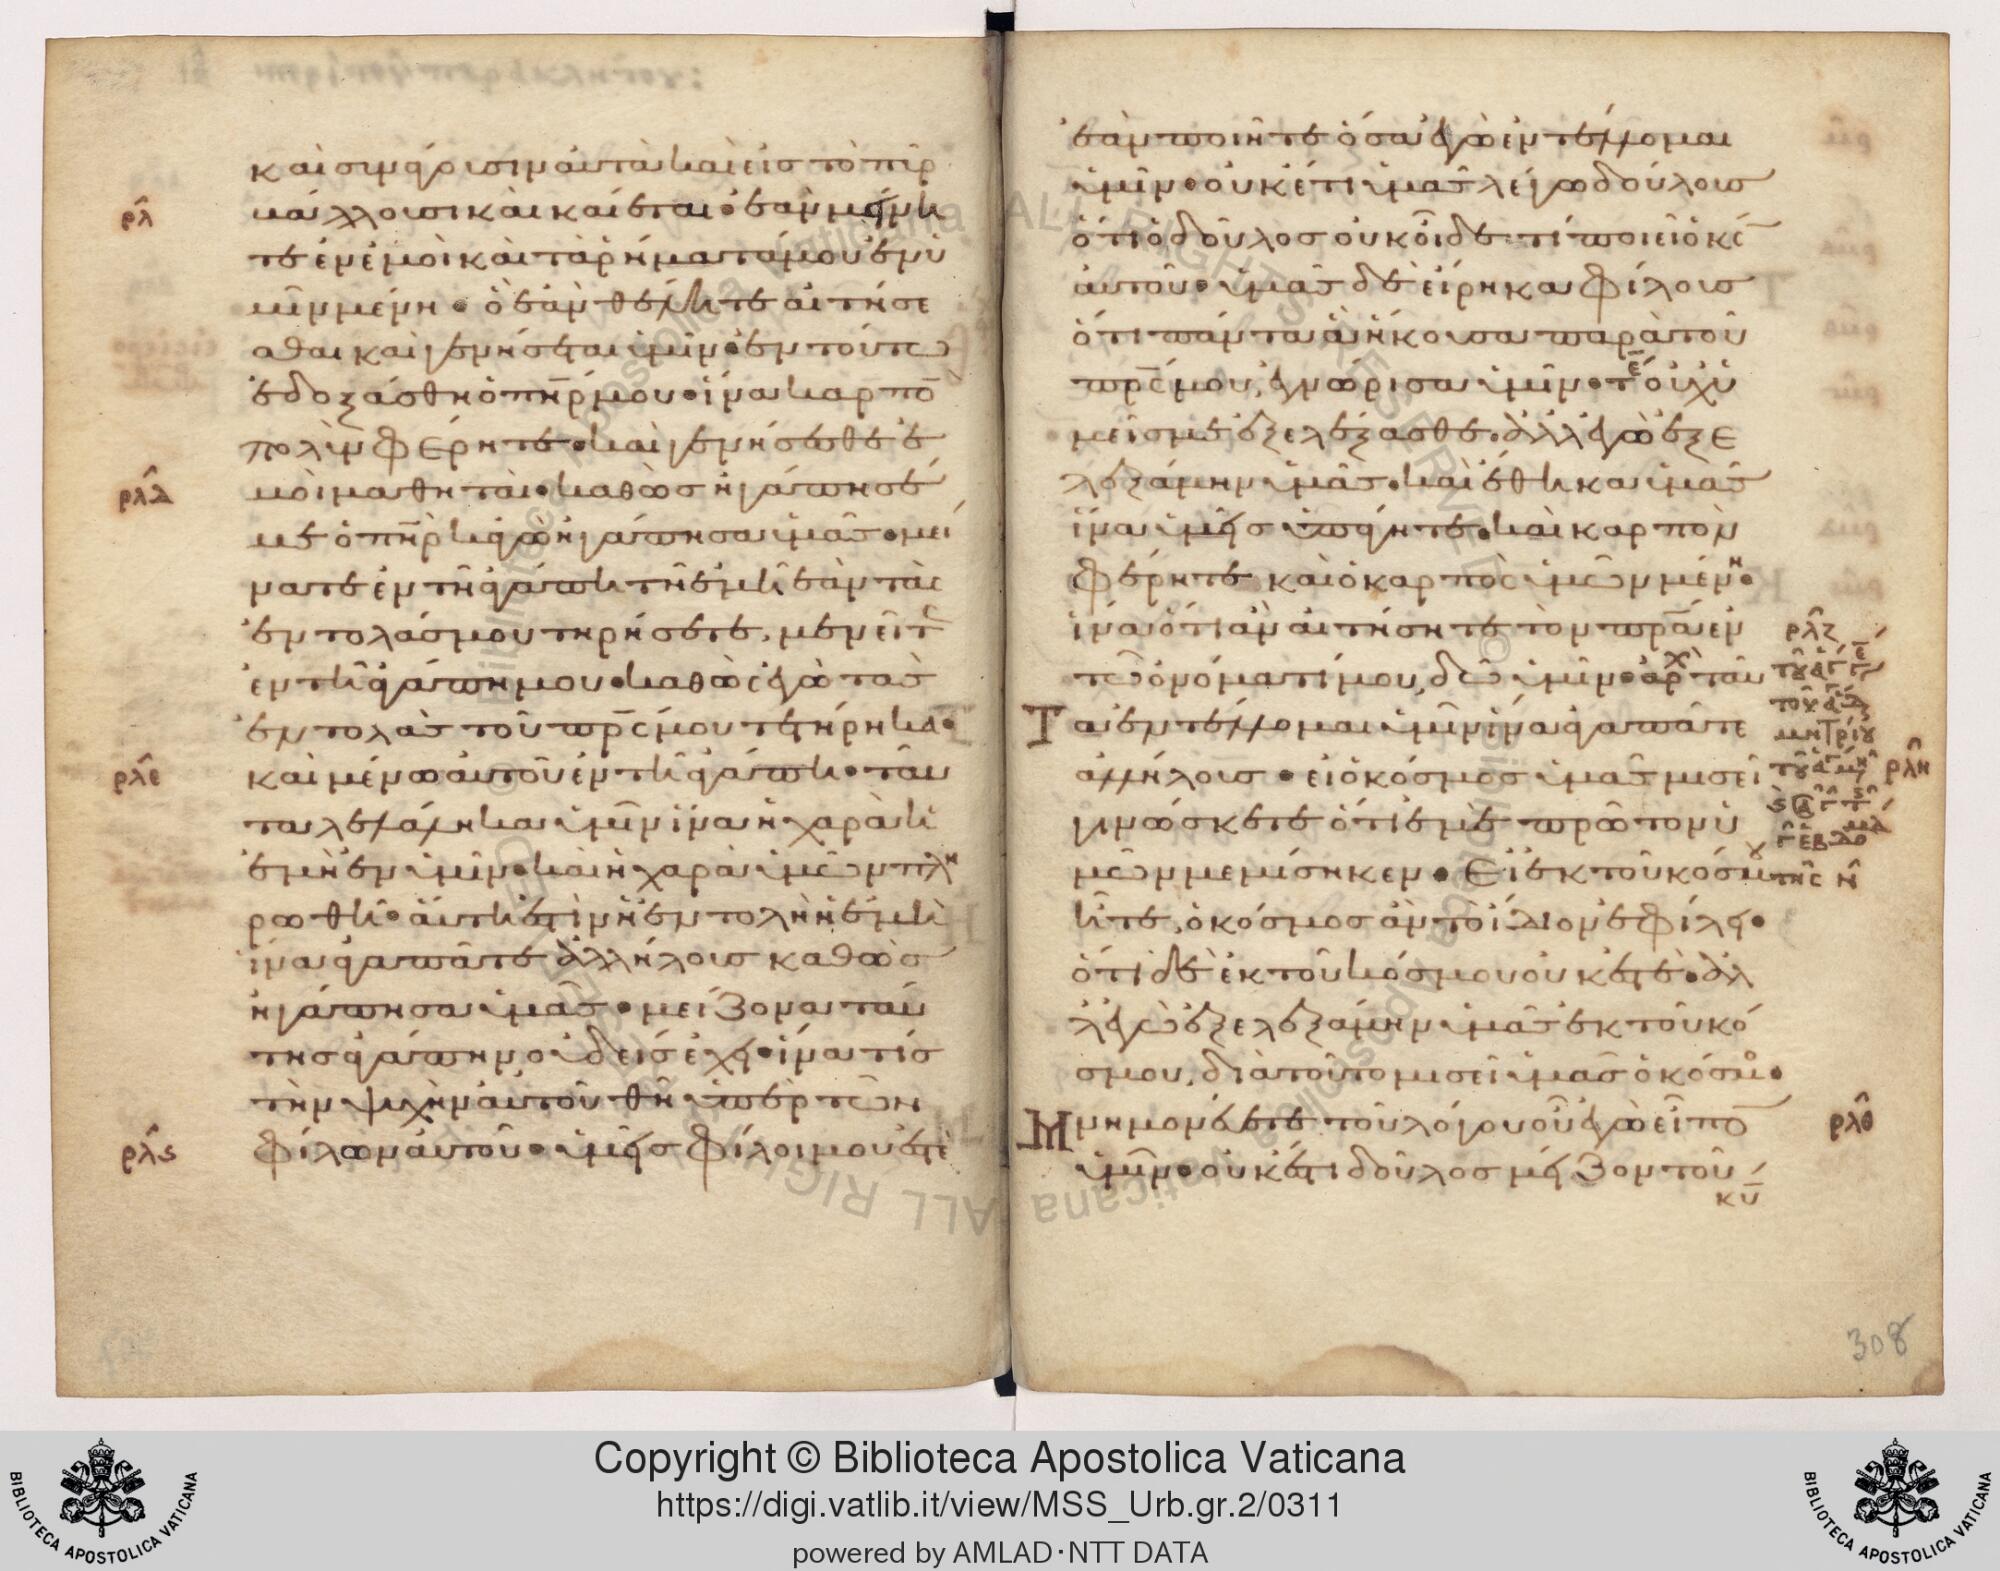 καὶ συνάγουσιν αὐτὰ καὶ εἰς τὸ πῦρ
βάλλουσι καὶ καίεται· ἐὰν μείνη
τε ἐν ἐμοὶ καὶ τὰ ῥήματά μου ἐν ὑ
μῖν μείνη· ὃ ἐὰν θέλητε αἰτήσε
σθαι καὶ γενήσεται ὑμῖν· ἐν τούτω
ἐδοξάσθη ὁ πηρ μου· ἵνα καρπὸ
πολὺν φέρητε· καὶ γενήσεσθε ἐ
μοὶ μαθηταί· καθὼς ἠγάπησέ
με ὁ πηρ κἀγὼ ἠγάπησα ὑμᾶς· μεί
νατε ἐν τῇ ἀγάπη τῇ ἐμῇ ἐὰν τὰς
ἐντολάς μου τηρήσετε, μενεῖτε
ἐν τῇ ἀγάπη μου· καθὼς ἐγὼ τὰς
ἐντολὰς τοῦ πρς μου τετήρηκα·
καὶ μένω αὐτοῦ ἐν τῇ ἀγάπη· ταῦ
τα λελάληκα ὑμῖν ἵνα ἡ χαρὰ ἡ
ἐμὴ ἐν ὑμῖν· καὶ ἡ χαρὰ ὑμῶν πλη
ρωθῇ· αὕτη ἐστὶν ἡ ἐντολὴ ἡ ἐμὴ
ἵνα ἀγαπᾶτε ἀλλήλους καθὼς
ἠγάπησα ὑμᾶς· μείζονα ταύ
της ἀγάπην, οὐδεὶς ἔχει· ἵνα τίς
τὴν ψυχὴν αὐτοῦ θῇ ὑπὲρ τῶν
φίλων αὐτοῦ· ὑμεῖς φίλοι μου ἐστὲ
ρλ
ρλδ
ρλε
ρλς
ἐὰν ποιῆτε ὅσα ἐγὼ ἐντέλλομαι
ὑμῖν· οὐκέτι ὑμᾶς λέγω δούλους
ὅτι ὁ δοῦλος οὐκ οἶδε τί ποιεῖ ὁ κς
αὐτοῦ· ὑμᾶς δὲ εἴρηκα φίλους
ὅτι πάντα ἃ ἤκουσα παρὰ τοῦ
πρς μου, ἐγνώρισα ὑμῖν· τε οὐχ ὑ
μεῖς με ἐξελέξασθε· ἀλλ' ἐγὼ ἐξε
λεξάμην ὑμᾶς· καὶ ἔθηκα ὑμᾶς
ἵνα ὑμεῖς ὑπάγητε· καὶ καρπὸν
φέρητε καὶ ὁ καρπὸς ὑμῶν μένη·
ἵνα ὅτι ἂν αἰτήσητε τὸν πρα ἐν
τῶ ὀνόματί μου, δῶ ὑμῖν· αρχ ταῦ
τα ἐντέλλομαι ὑμῖν ἵνα ἀγαπᾶτε
ἀλλήλους· εἰ ὁ κόσμος ὑμᾶς μισεῖ
γινώσκετε ὅτι ἐμὲ πρῶτον ὑ
μῶν μεμίσηκεν· Εἰ ἐκ τοῦ κόσμου
ἦτε, ὁ κόσμος ἂν τὸ ἴδιον ἐφίλει·
ὅτι δὲ ἐκ τοῦ κόσμου οὐκ ἐστέ· ἀλ
λ' ἐγὼ ἐξελεξάμην ὑμᾶς ἐκ τοῦ κό
σμου, διὰ τοῦτο μισεῖ ὑμᾶς ὁ κόσμο·
Μνημονεύετε τοῦ λόγου οὗ ἐγὼ εἶπο
ὑμῖν· οὐκ ἔστι δοῦλος μείζων τοῦ
κυ
ρλζ
ρλη
ρλθ
308
Copyright © Biblioteca Apostolica Vaticana
https://digi.vatlib.it/view/MSS_Urb.gr.2/0311
powered by AMLAD·NTT DATA
BIBLIOTECA APOSTOLICA VATICANA
BIBLIOTECA APOSTOLICA VATICANA